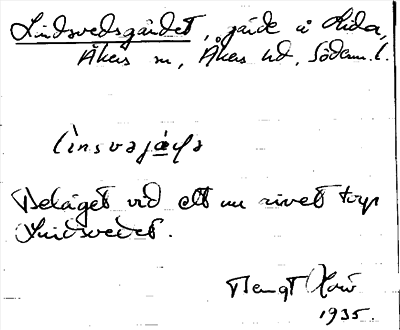 Lindsvedsgärdet, gärde å Lida,
Åkers sn, Åkers hd, Söderm. l.
Beläget vid ett nu rivet torp
Lindsvedet.
Bengt
1935.